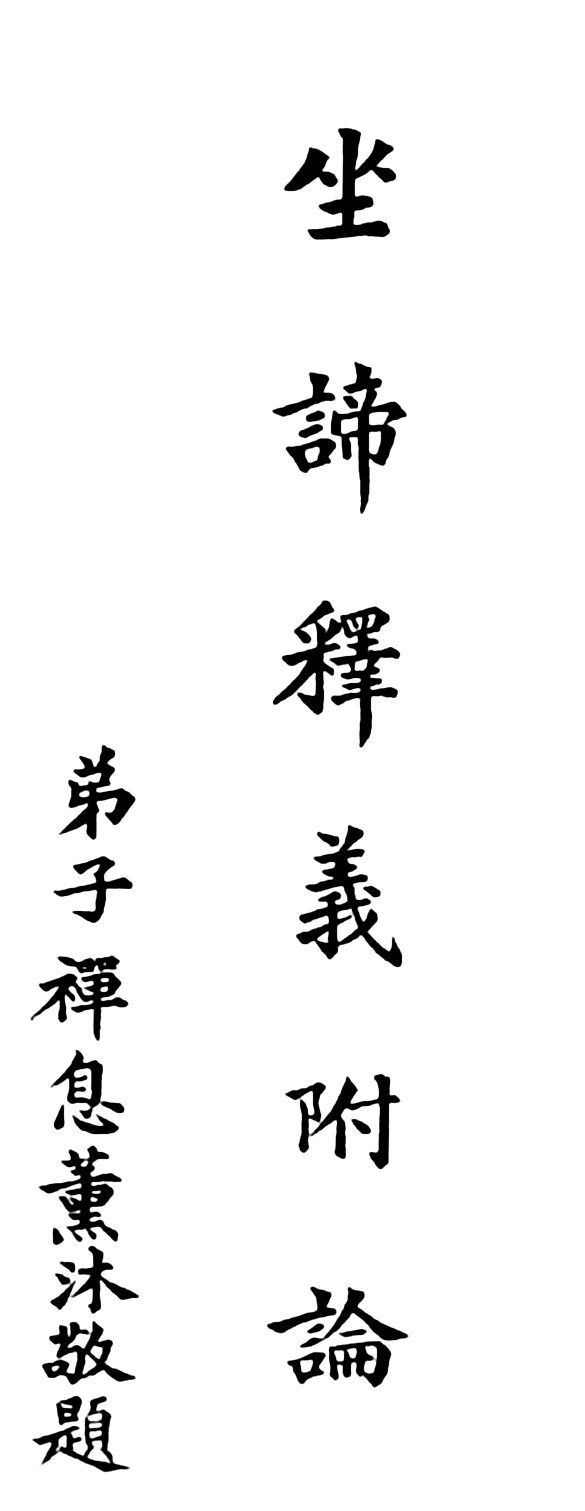 坐諦釋義附論
弟子禪息薰沐敬題